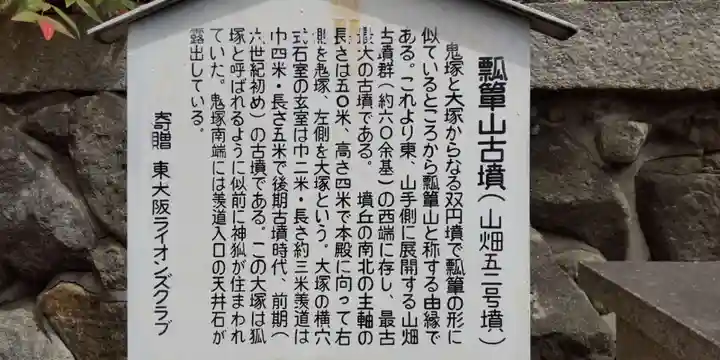 瓢箪山古墳(山畑五二号墳)
鬼塚と大塚からなる双円墳で瓢箪の形に
似ているところから瓢箪山と称する由縁で
ある。これより東、山手側に展開する山畑
古墳群(約六〇余基)の西端に存し、最古
最大の古墳である。 墳丘の南北の主軸の
長さは五〇米、高さ四米で本殿に向って右
側を鬼塚、左側を大塚という。大塚の横穴
式石室の玄室は巾二米・長さ約三米羨道は
巾四米・長さ五米で後期古墳時代、前期(
六世紀初め)の古墳である。この大塚は狐
塚と呼ばれるように似前に神狐が住まわれ
ていた。鬼塚南端には羨道入口の天井石が
露出している。
寄贈 東大阪ライオンズクラブ